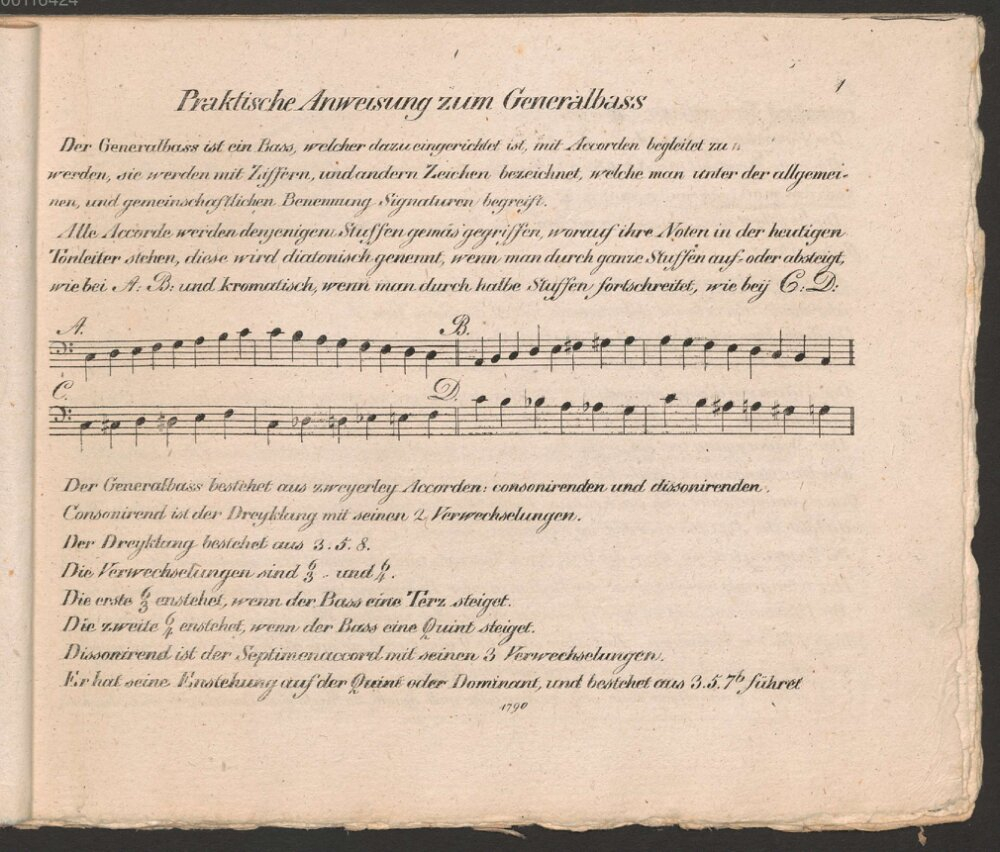 00110424
1
Praktische Anweisung zum Generalbass
Der Generalbass ist ein Bass, welcher dazu eingerichtet ist, mit Accorden begleitet zu
werden, sie werden mit Ziffern, und andern Zeichen bezeichnet, welche man unter der allgemei-
nen, und gemeinschaftlichen Benennung Signaturen begreift.
Alle Accorde werden denjenigen Stuffen gemäs gegriffen, worauf ihre Noten in der heutigen
Tonleiter stehen, diese wird diatonisch genennt, wenn man durch ganze Stuffen auf- oder absteigt,
wie bei A: B: und kromatisch, wenn man durch halbe Stuffen fortschreitet, wie beij C: D:
A. B.
C. D.
Der Generalbass bestehet aus zweyerley Accorden: consonirenden und dissonirenden.
Consonirend ist der Dreyklang mit seinen 2 Verwechselungen.
Der Dreyklang bestehet aus 3. 5. 8.
Die Verwechselungen sind 6/3 und 6/4.
Die erste 6/3 enstehet, wenn der Bass eine Terz steiget.
Die zweite 6/4 enstehet, wenn der Bass eine Quint steiget.
Dissonirend ist der Septimenaccord mit seinen 3 Verwechselungen.
Er hat seine Enstehung auf der Quint oder Dominant, und bestehet aus 3. 5. 7♭ führet
1790